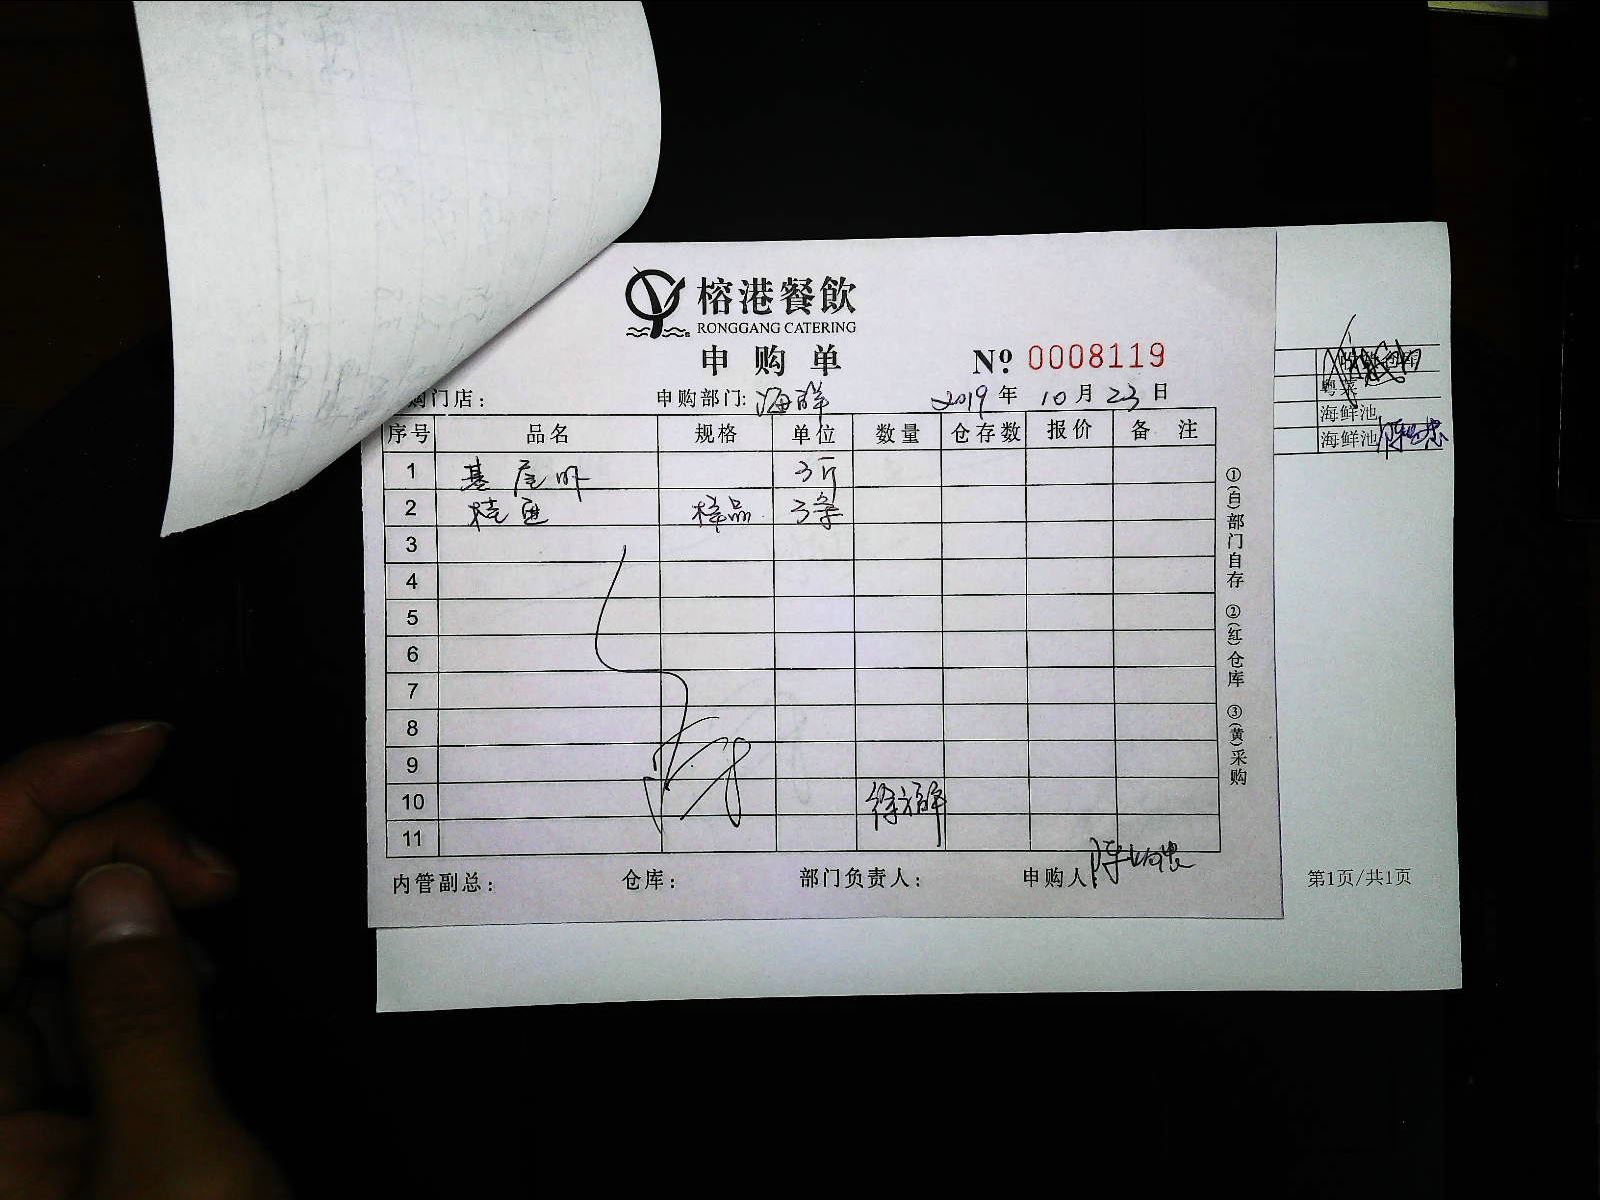 榕港餐飲
RONGGANG CATERING
申购单 Nº 0008119
购门店： 申购部门: 海鲜 2019 年 10 月 23 日
序号 品名 规格 单位 数量 仓存数 报价 备 注
1 基尾虾 3斤
2 桂鱼 样品 3条
3
4
5
6
7
8
9
10 徐福群
11
内管副总： 仓库： 部门负责人： 申购人
①(白)部门自存 ②(红)仓库 ③(黄)采购
粤菜
海鲜池
海鲜池
第1页/共1页